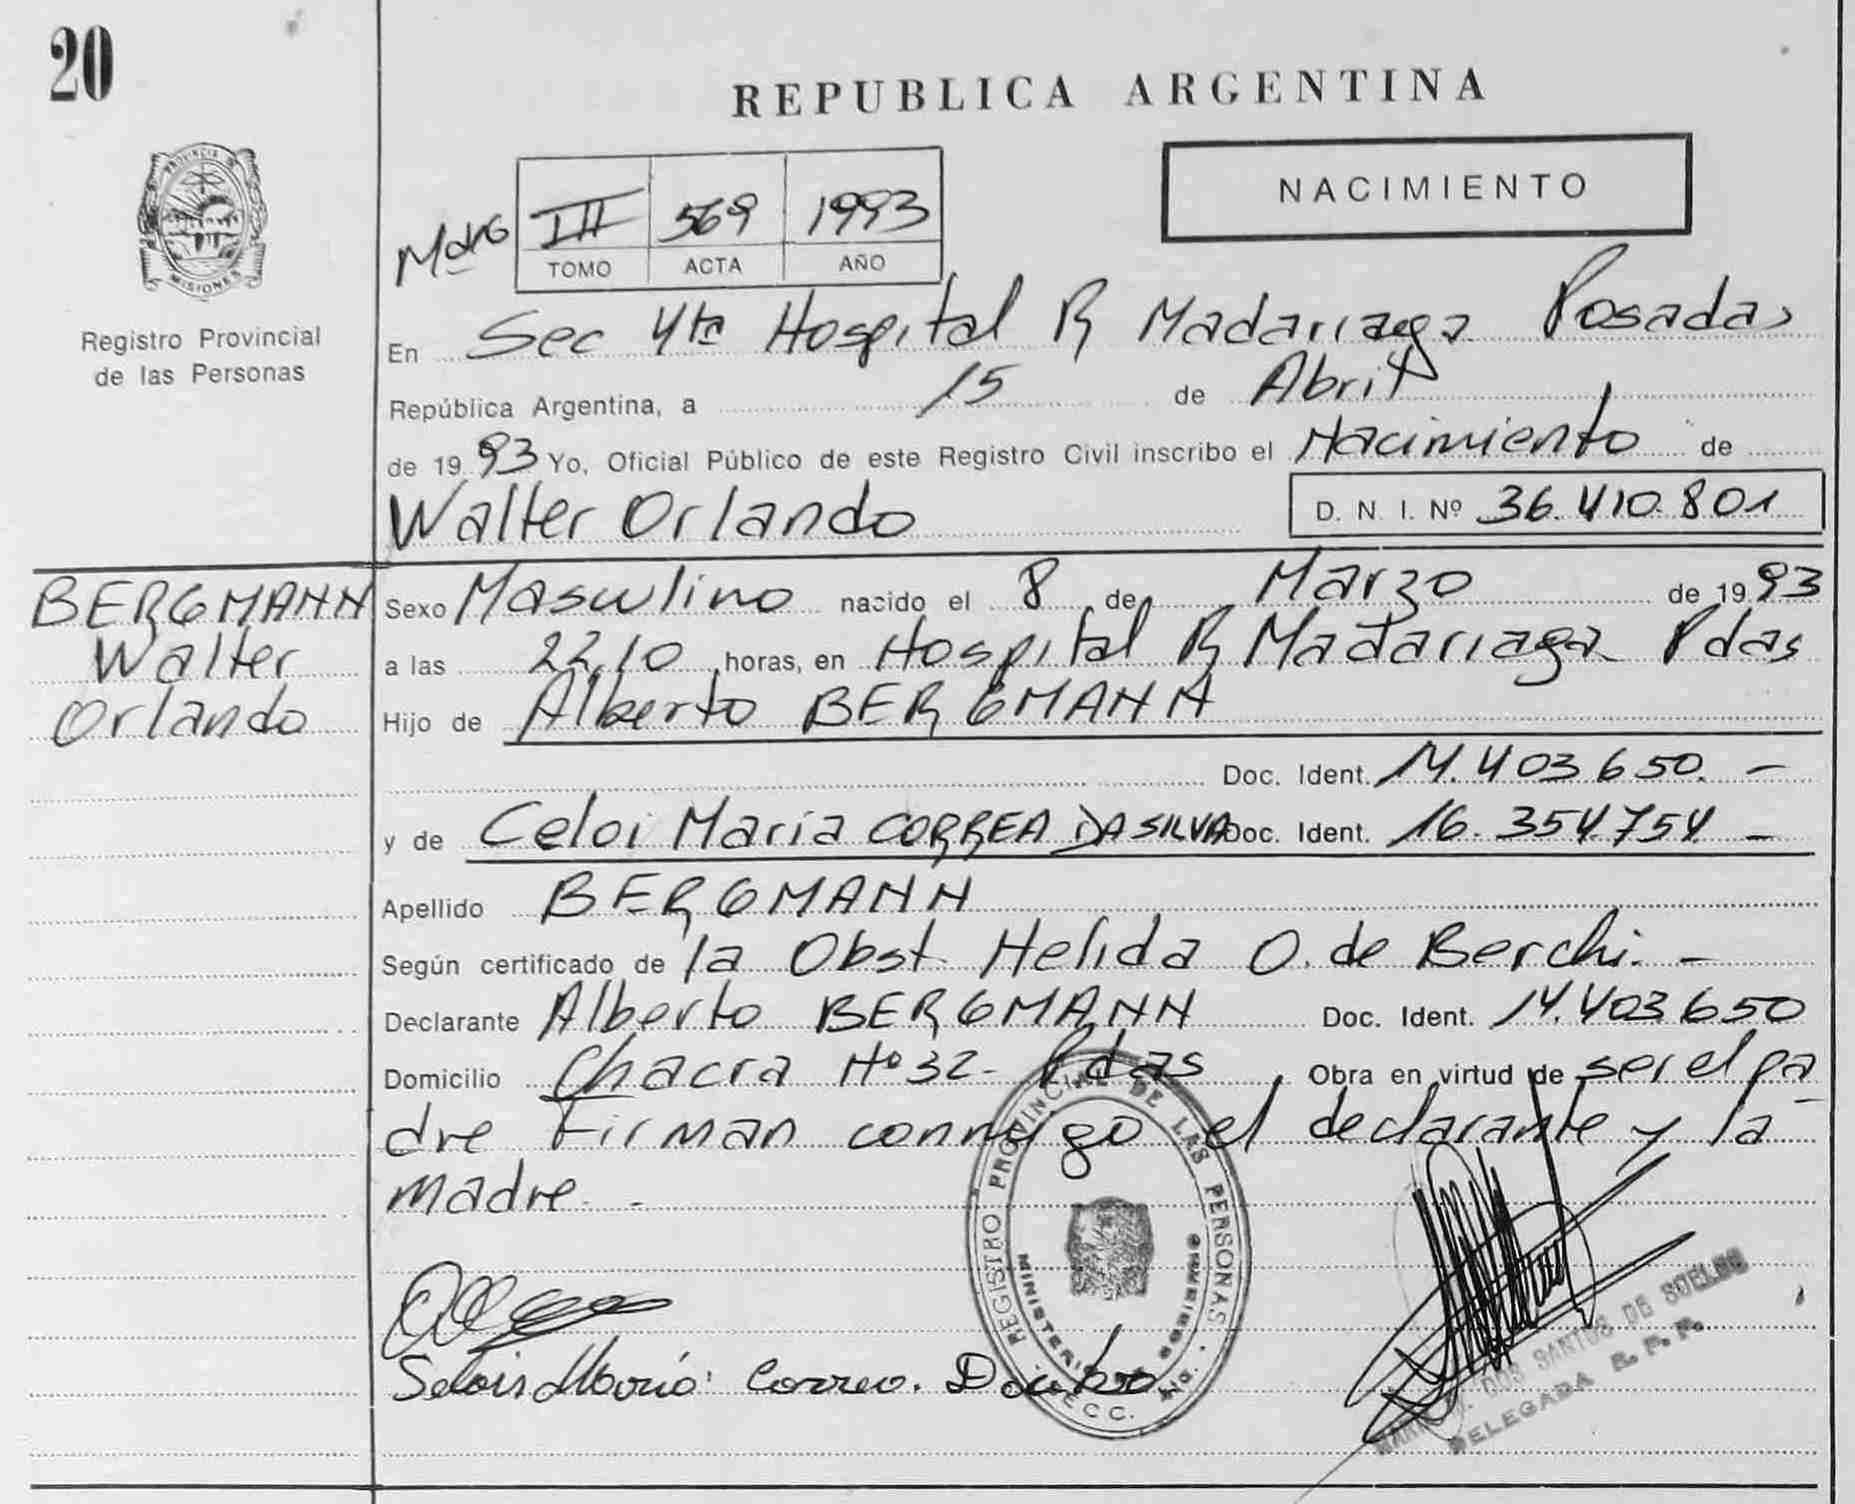 20
REPUBLICA ARGENTINA
PROVINCIA DE
MISIONES
Registro Provincial
de las Personas
NACIMIENTO
III 569 1993
TOMO ACTA AÑO
En Sec 4ta Hospital R Madariaga Posadas
República Argentina, a 15 de Abril
de 1993 Yo, Oficial Público de este Registro Civil inscribo el Nacimiento de
Walter Orlando D. N. I. Nº 36.410.801
BERGMANN
Walter
Orlando
Sexo Masculino nacido el 8 de Marzo de 1993
a las 22,10 horas, en Hospital R Madariaga Pdas
Hijo de Alberto BERGMANN
Doc. Ident. 14.403.650. -
y de Celoi Maria CORREA DA SILVA Doc. Ident. 16.354.754 -
Apellido BERGMANN
Según certificado de la Obst Helida O. de Berchi. -
Declarante Alberto BERGMANN Doc. Ident. 14.403.650
Domicilio Chacra Nº 32- Pdas Obra en virtud de ser el pa
dre Firman conmigo el declarante y la
madre. -
REGISTRO PROVINCIAL DE LAS PERSONAS
MINISTERIO DE GOBIERNO
SECC.
DOS SANTOS DE
DELEGADA R. P. P.